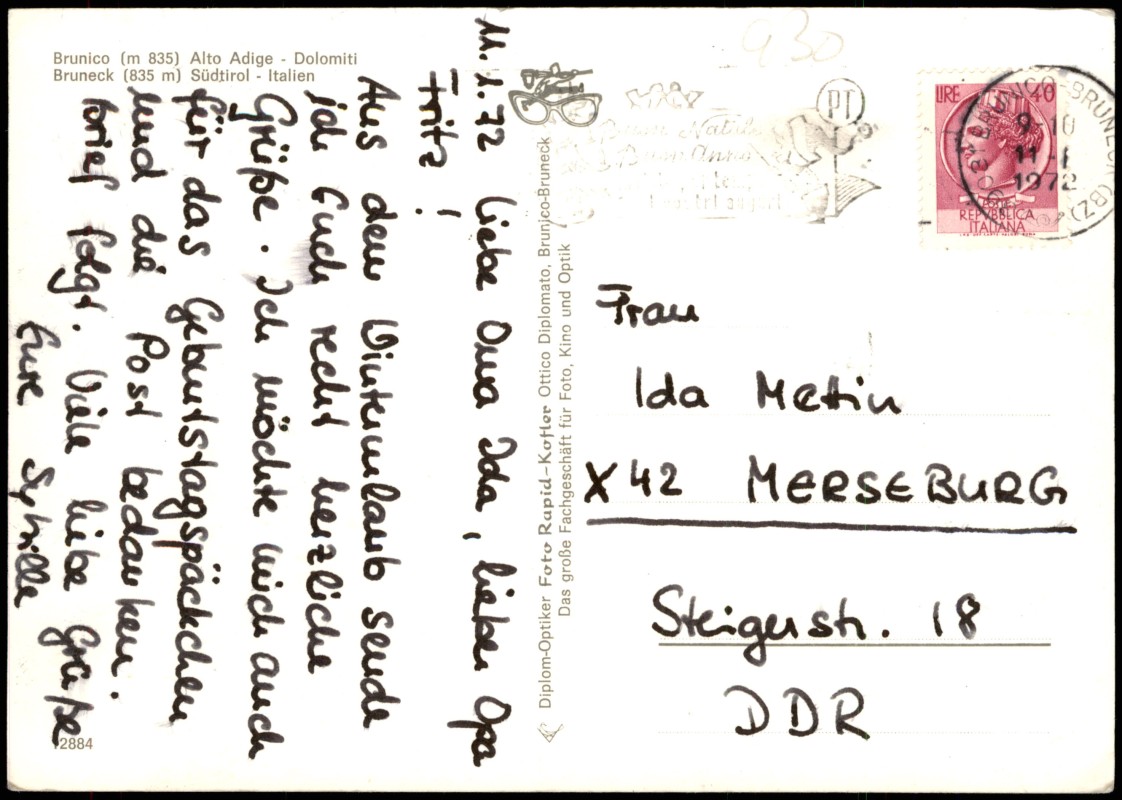 Brunico (m 835) Alto Adige - Dolomiti
Bruneck (835 m) Südtirol - Italien
11.1.72 Liebe Oma Ida, lieber Opa
Fritz!
Aus dem Winterurlaub sende
ich Euch recht herzliche
Grüße. Ich möchte mich auch
für das Geburtstagspäckchen
und die Post bedanken.
brief folgt. Viele liebe Grüße
Eure Sybille
12884
Diplom-Optiker Foto Rapid-Kofler Ottico Diplomato, Brunico-Bruneck
Das große Fachgeschäft für Foto, Kino und Optik
930
Buon Natale
Buon Anno
PT
LIRE 40
REPUBBLICA
ITALIANA
BRUNICO-BRUNECK (BZ)
9-10
11-1
1972
Frau
Ida Mettin
X42 MERSEBURG
Steigerstr. 18
DDR